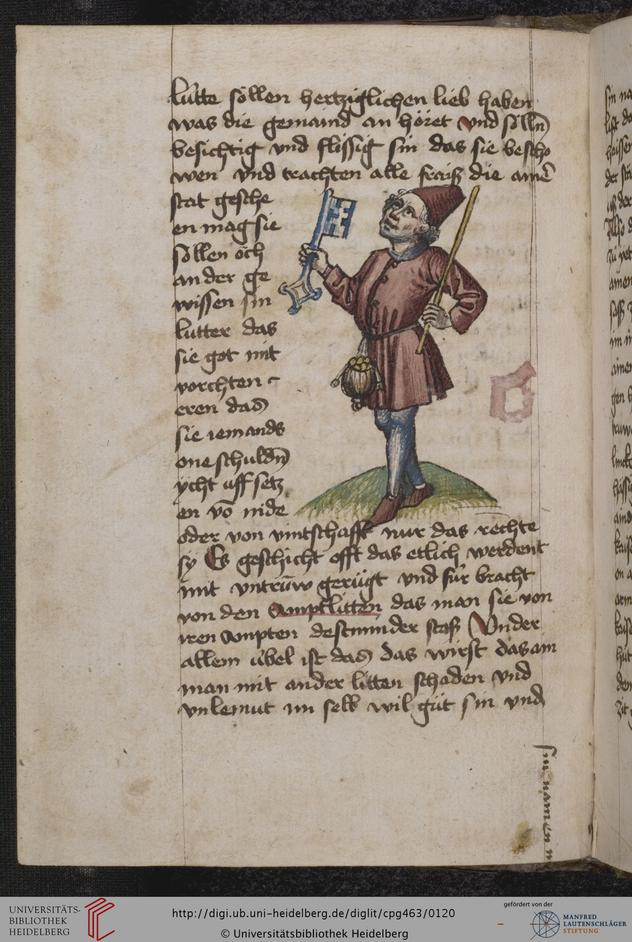 lütte söllen hertziglichen lieb haben
was die gemaind an höret vnd sölln̄
besichtig vnd flissig sin das sie bescho
wen vnd trachten alle fraiß die
stat gesche
en mag sie
söllen öch
an der ge
wissen sin
lutter das
sie got mit
vorchten
eren das
sie iemands
one schuldn̄
ycht uff setz
en vō nide
oder von vintschafft nur das rechte
sy Es geschicht offt das etlich werdent
mit vntrüw gerügt vnd für bracht
von den Amptlütten das man sie von
iren ampten destminder stoß Vnder
allem übel ist das das wirst das ain
man mit ander lütten schaden vnd
vnlemut im selb wil güt sin vnd
UNIVERSITÄTS-
BIBLIOTHEK
HEIDELBERG
http://digi.ub.uni-heidelberg.de/diglit/cpg463/0120
© Universitätsbibliothek Heidelberg
gefördert von der
MANFRED
LAUTENSCHLÄGER
STIFTUNG